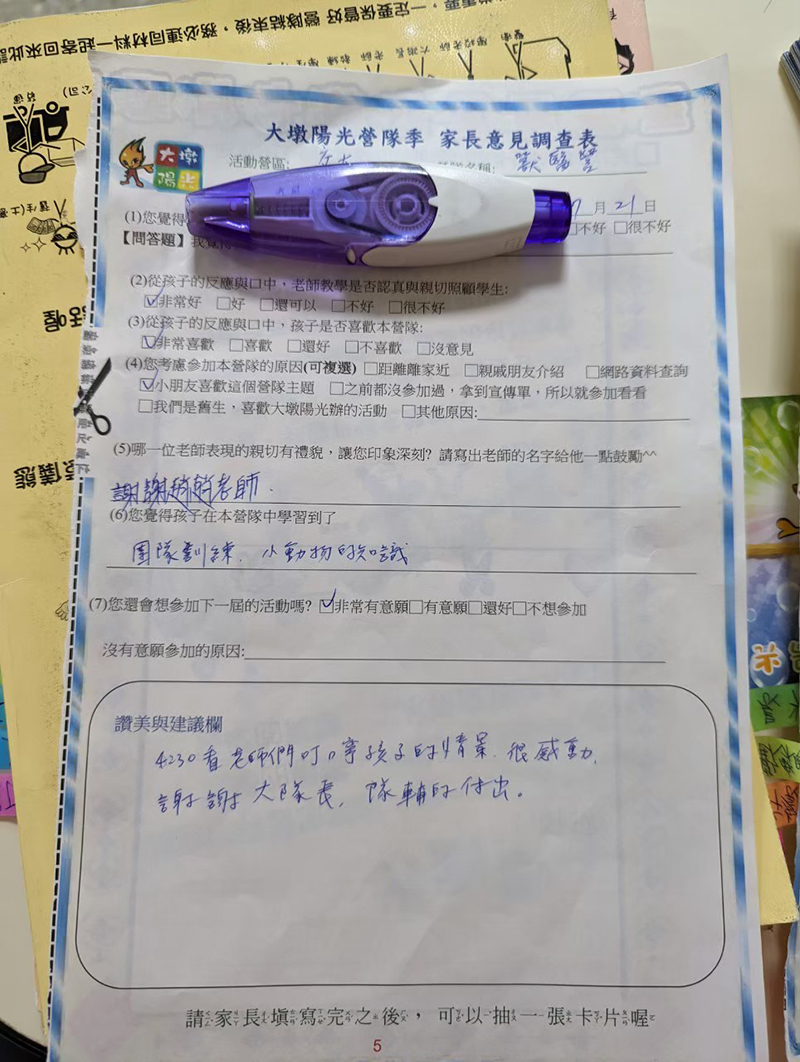 一定要保管好 營隊結束後，務必連同材料一起寄回來此
大墩陽光營隊季 家長意見調查表
大墩
陽光
活動營區:
獸醫營
(1)您覺得
7月21日
【問答題】我覺得
□不好 □很不好
(2)從孩子的反應與口中，老師教學是否認真與親切照顧學生:
☑非常好 □好 □還可以 □不好 □很不好
(3)從孩子的反應與口中，孩子是否喜歡本營隊:
☑非常喜歡 □喜歡 □還好 □不喜歡 □沒意見
(4)您考慮參加本營隊的原因(可複選) □距離離家近 □親戚朋友介紹 □網路資料查詢
☑小朋友喜歡這個營隊主題 □之前都沒參加過，拿到宣傳單，所以就參加看看
□我們是舊生，喜歡大墩陽光辦的活動 □其他原因:
(5)哪一位老師表現的親切有禮貌，讓您印象深刻? 請寫出老師的名字給他一點鼓勵^^
謝謝 老師.
(6)您覺得孩子在本營隊中學習到了
團隊訓練、小動物的知識
(7)您還會想參加下一屆的活動嗎? ☑非常有意願□有意願□還好□不想參加
沒有意願參加的原因:
讚美與建議欄
4230看老師們叮嚀孩子的情景、很感動、
謝謝大隊長、隊輔的付出。
請家長填寫完之後，可以抽一張卡片喔
5